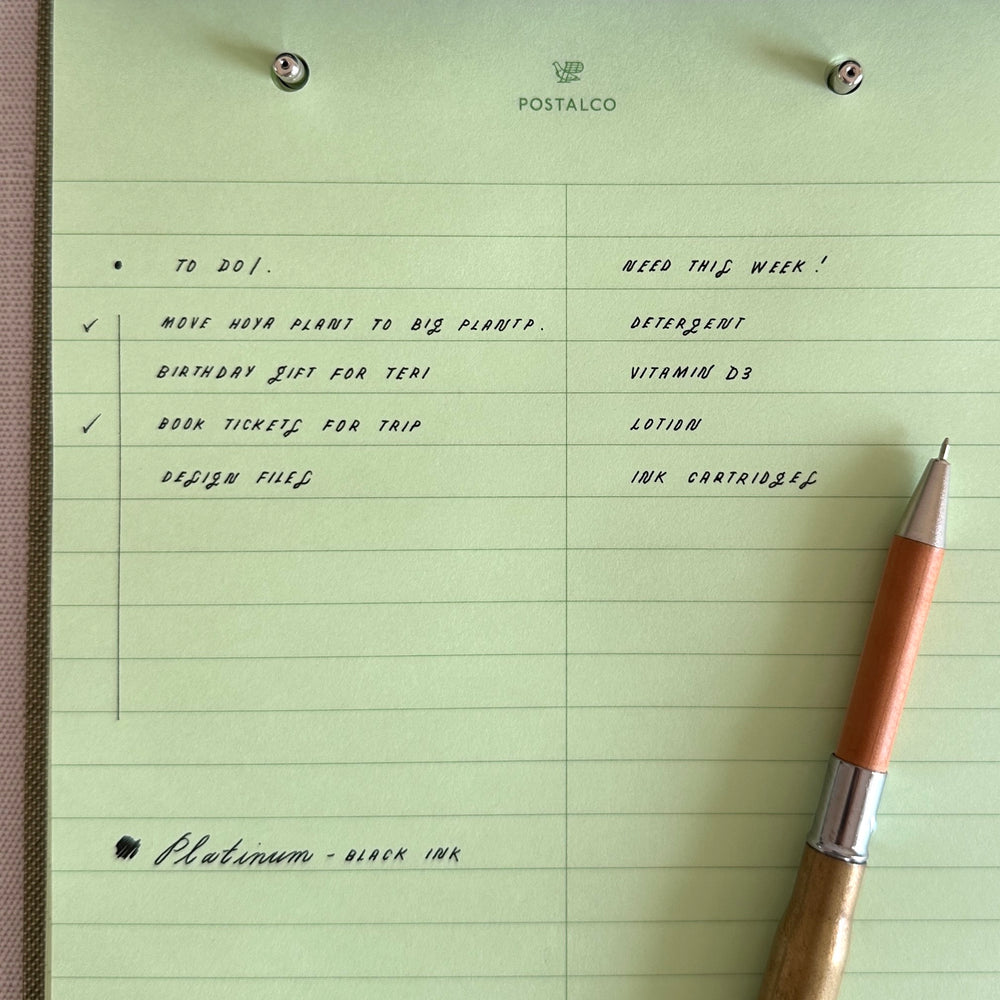 POSTALCO
• TO DO/.
✓ MOVE HOYA PLANT TO BIG PLANTP.
BIRTHDAY GIFT FOR TERI
✓ BOOK TICKETS FOR TRIP
DESIGN FILES
NEED THIS WEEK!
DETERGENT
VITAMIN D3
LOTION
INK CARTRIDGES
Platinum - BLACK INK